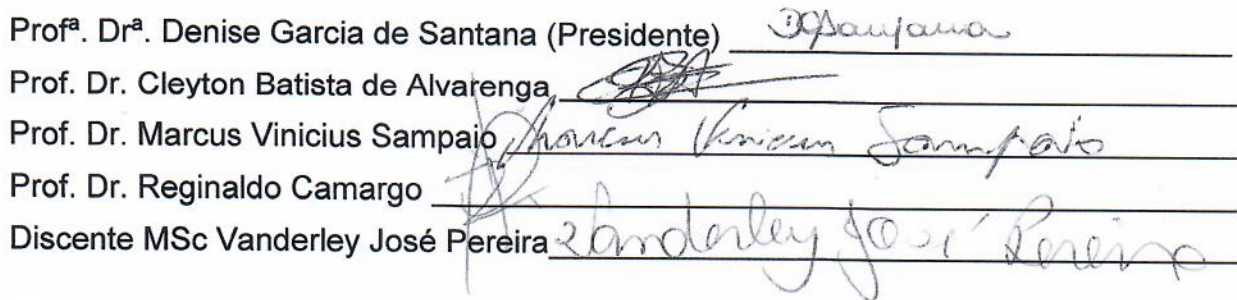 Profª. Drª. Denise Garcia de Santana (Presidente) DGSantana
Prof. Dr. Cleyton Batista de Alvarenga
Prof. Dr. Marcus Vinicius Sampaio Marcus Vinicius Sampaio
Prof. Dr. Reginaldo Camargo
Discente MSc Vanderley José Pereira Vanderley José Pereira